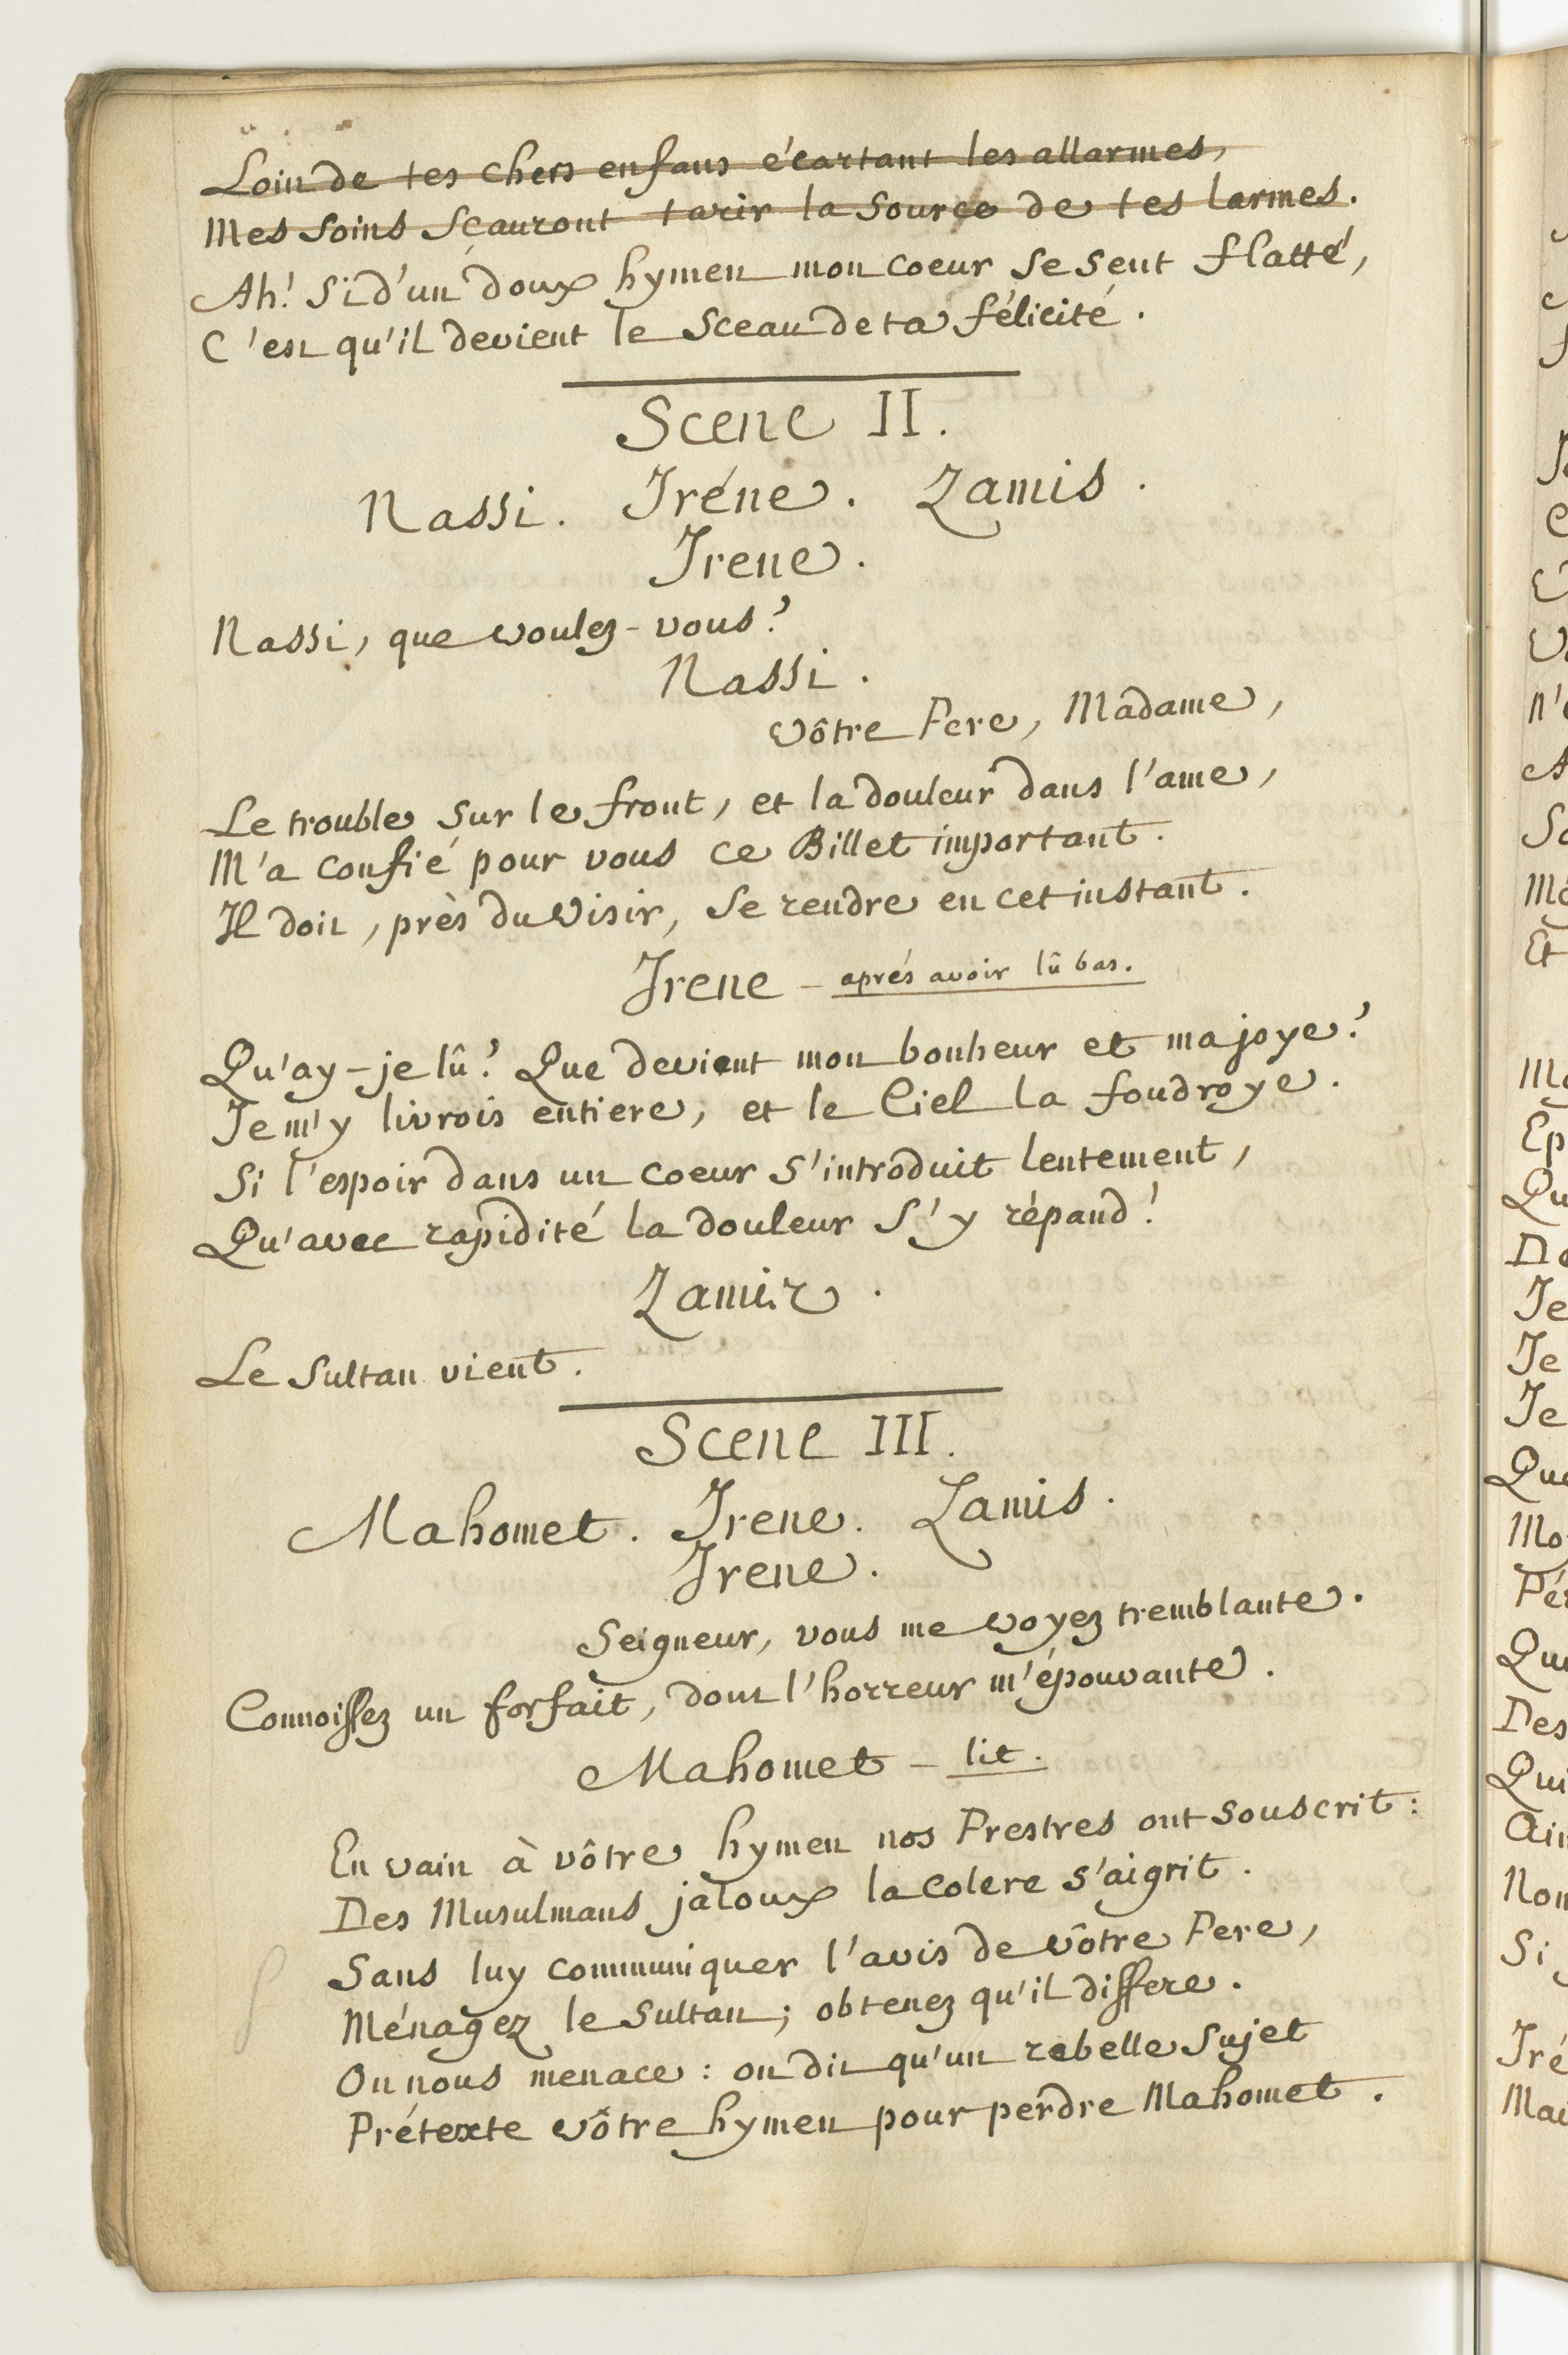 Loin de tes chers enfans écartant les allarmes,
Mes soins sçauront tarir la source de tes larmes.
Ah! Si d'un doux hymen mon coeur se sent flatté,
C'est qu'il devient le sceau de ta félicité.
Scene II.
Nassi. Iréne. Zamis.
Irene.
Nassi, que voulez-vous?
Nassi.
Vôtre Pere, Madame,
Le trouble sur le front, et la douleur dans l'ame,
M'a confié pour vous ce Billet important.
Il doit, près du Visir, se rendre en cet instant.
Irene - aprés avoir lû bas.
Qu'ay-je lû? Que devient mon bonheur et ma joye?
Je m'y livrois entiere, et le Ciel la foudroye.
Si l'espoir dans un coeur s'introduit lentement,
Qu'avec rapidité la douleur s'y répand!
Zamis.
Le Sultan vient.
Scene III.
Mahomet. Irene. Zamis.
Irene.
Seigneur, vous me voyez tremblante.
Connoissez un forfait, dont l'horreur m'épouvante.
Mahomet - lit.
En vain à vôtre hymen nos Prestres ont souscrit:
Des Musulmans jaloux la colere s'aigrit.
Sans luy communiquer l'avis de vôtre Pere,
Ménagez le Sultan; obtenez qu'il differe.
On nous menace: on dit qu'un rebelle sujet
Prétexte vôtre hymen pour perdre Mahomet.